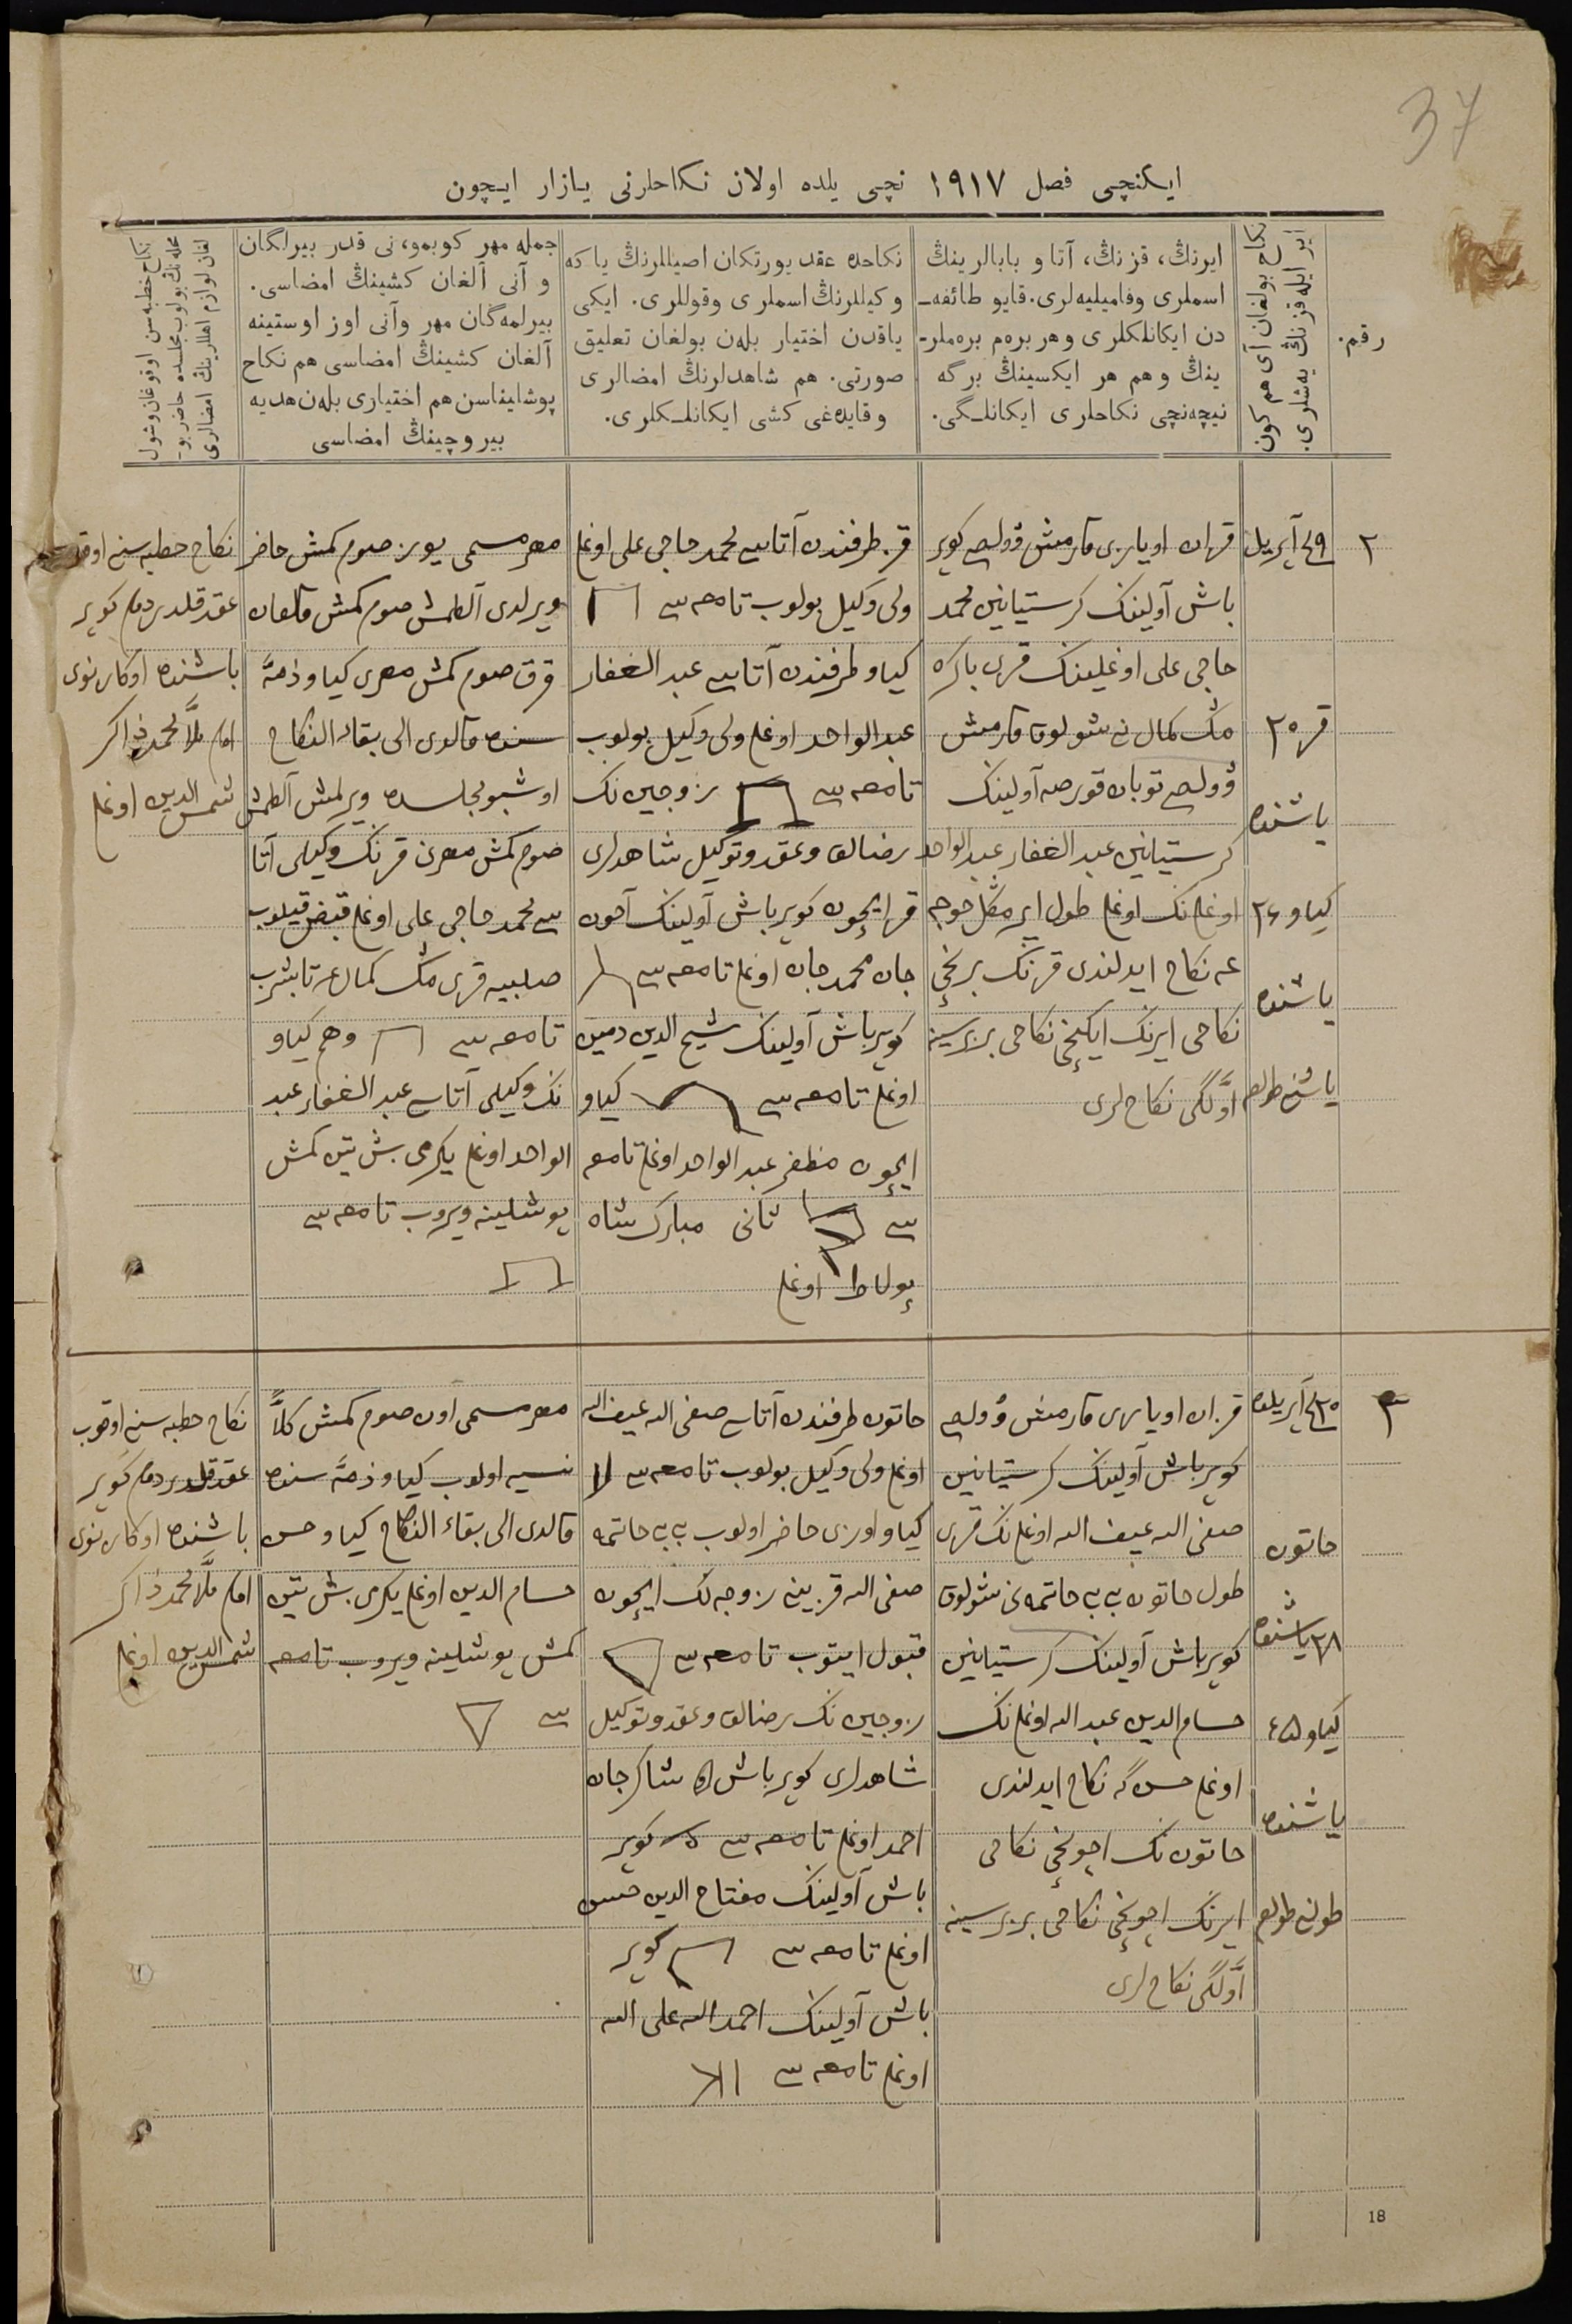 37
ایکنچی فصل ١٩١٧ نچی یلده اولان نکاحلرنی یازار ایچون
رقم.
نکاح بولغان آی هم کون
ایر ایله قزنڭ یه‌شلری.
ایرنڭ، قزنڭ، آتا و بابالرینڭ
اسملری وفامیلیه‌لری. قایو طائفه‌ـ
دن ایکانلکلری و هر بره‌م بره‌ملر-
ینڭ و هم هر ایکسینڭ برگه
نیچه‌نچی نکاحلری ایکانلـگی.
نکاحده عقد یورتکان اصیللرنڭ یا که
وکیللرنڭ اسملری وقوللری. ایکی
یاقدن اختیار بله‌ن بولغان تعلیق
صورتی. هم شاهدلرنڭ امضالری
و قایده‌غی کشی ایکانلـکلری.
جمله مهر کوبمو، نی قدر بیرلگان
و آنی آلغان کشینڭ امضاسی.
بیرلمه‌گان مهر وآنی اوز اوستینه
آلغان کشینڭ امضاسی هم نکاح
پوشلیناسن هم اختیاری بله‌ن هدیه
بیروچینڭ امضاسی
نکاح خطبه‌سن اوقوغان وشول
محله‌نڭ بولوب مجلسده حاضر بو-
لغان لوازم اهللرینڭ امضالری
٢
٢٩ آپریل
قزه ٢٥
یاشنده
کیاو ٢٦
یاشنده
قزان اویازی قارمش وولص کوپر
باش آولینڭ کرستیانین محمد
حاجی علی اوغلینڭ قزی باکره
مشک کمال نی شولوق قارمش
وولص توبان قورصه آولینڭ
کرستیانین عبد الغفار عبد الواحد
اوغلی نک اوغلی طول ایر مکمل خوجه
غه نکاح ایدلندی قزنڭ برنچی
نکاحی ایرنڭ ایکنچی نکاحی بربرسینه
اوّلگی نکاح لری
قز طرفندن آتاسی محمد حاجی علی اوغلی
ولی وکیل بولوب تامغه سی
کیاو طرفندن آتاسی عبد الغفار
عبد الواحد اوغلی ولی وکیل بولوب
تامغه سی زوجین نک
رضالق وعقد وتوکیل شاهدلری
قز ایچون کوپر باش آولینڭ آخون
جان محمد جان اوغلی تامغه سی
کوپر باش آولینڭ شیخ الدین
اوغلی تامغه سی کیاو
ایچون مظفر عبد الواحد اوغلی تامغه
سی ثانی مبارک شاه
پولاط اوغلی
مهر مسمی یوز صوم کمش حاضر
ویرلدی آلطمش صوم کمش قالغان
قرق صوم کمش مهری کیاو ذمّه
سنده قالدی الی بقاء النکاح
اوشبو مجلسده ویرلمش آلطمش
صوم کمش مهرنی قزنڭ وکیلی آتا
سی محمد حاجی علی اوغلی قبض قیلوب
صلبیه قزی مشک کمال غه تابشرب
تامغه سی وهم کیاو
نک وکیلی آتاسی عبد الغفار عبد
الواحد اوغلی یکرمی بش تین کمش
پوشلینه ویروب تامغه سی
نکاح خطبه سنی
عقد قلدردم کوپر
باشنده اوکازنوی
امام ملّا محمد ذاکر
شمس الدین اوغلی
٣
٣٠ آپریلده
خاتون
٣٨ یاشنده
کیاو ٤٥
یاشنده
قزان اویازی قارمش وولص
کوپر باش آولینڭ کرستیانین
صفی الله عیف الله اوغلی نک قزی
طول خاتون بی بی خاتمه نی شولوق
کوپر باش آولینڭ کرستیانین
حسام الدین عبد الله اوغلی نک
اوغلی حسن گه نکاح ایدلندی
خاتون نک اچونچی نکاحی
ایرنڭ اچونچی نکاحی بربرسینه
اوّلگی نکاح لری
خاتون طرفندن آتاسی صفی الله عیف الله
اوغلی ولی وکیل بولوب تامغه سی
کیاو اوزی حاضر اولوب بی بی خاتمه
صفی الله قزینی زوجه لک ایچون
قبول ایتوب تامغه سی
زوجین نک رضالق وعقد وتوکیل
شاهدلری کوپر باش شاکر جان
احمد اوغلی تامغه سی کوپر
باش آولینڭ مفتاح الدین حسن
اوغلی تامغه سی کوپر
باش آولینڭ احمد الله علی الله
اوغلی تامغه سی
مهر مسمی اون صوم کمش کلاً
نسیه اولوب کیاو ذمّه سنده
قالدی الی بقاء النکاح کیاو حسن
حسام الدین اوغلی یکرمی بش تین
کمش پوشلینه ویروب تامغه
سی
نکاح خطبه سنی اوقوب
عقد قلدردم کوپر
باشنده اوکازنوی
امام ملّا محمد ذاکر
شمس الدین اوغلی
18